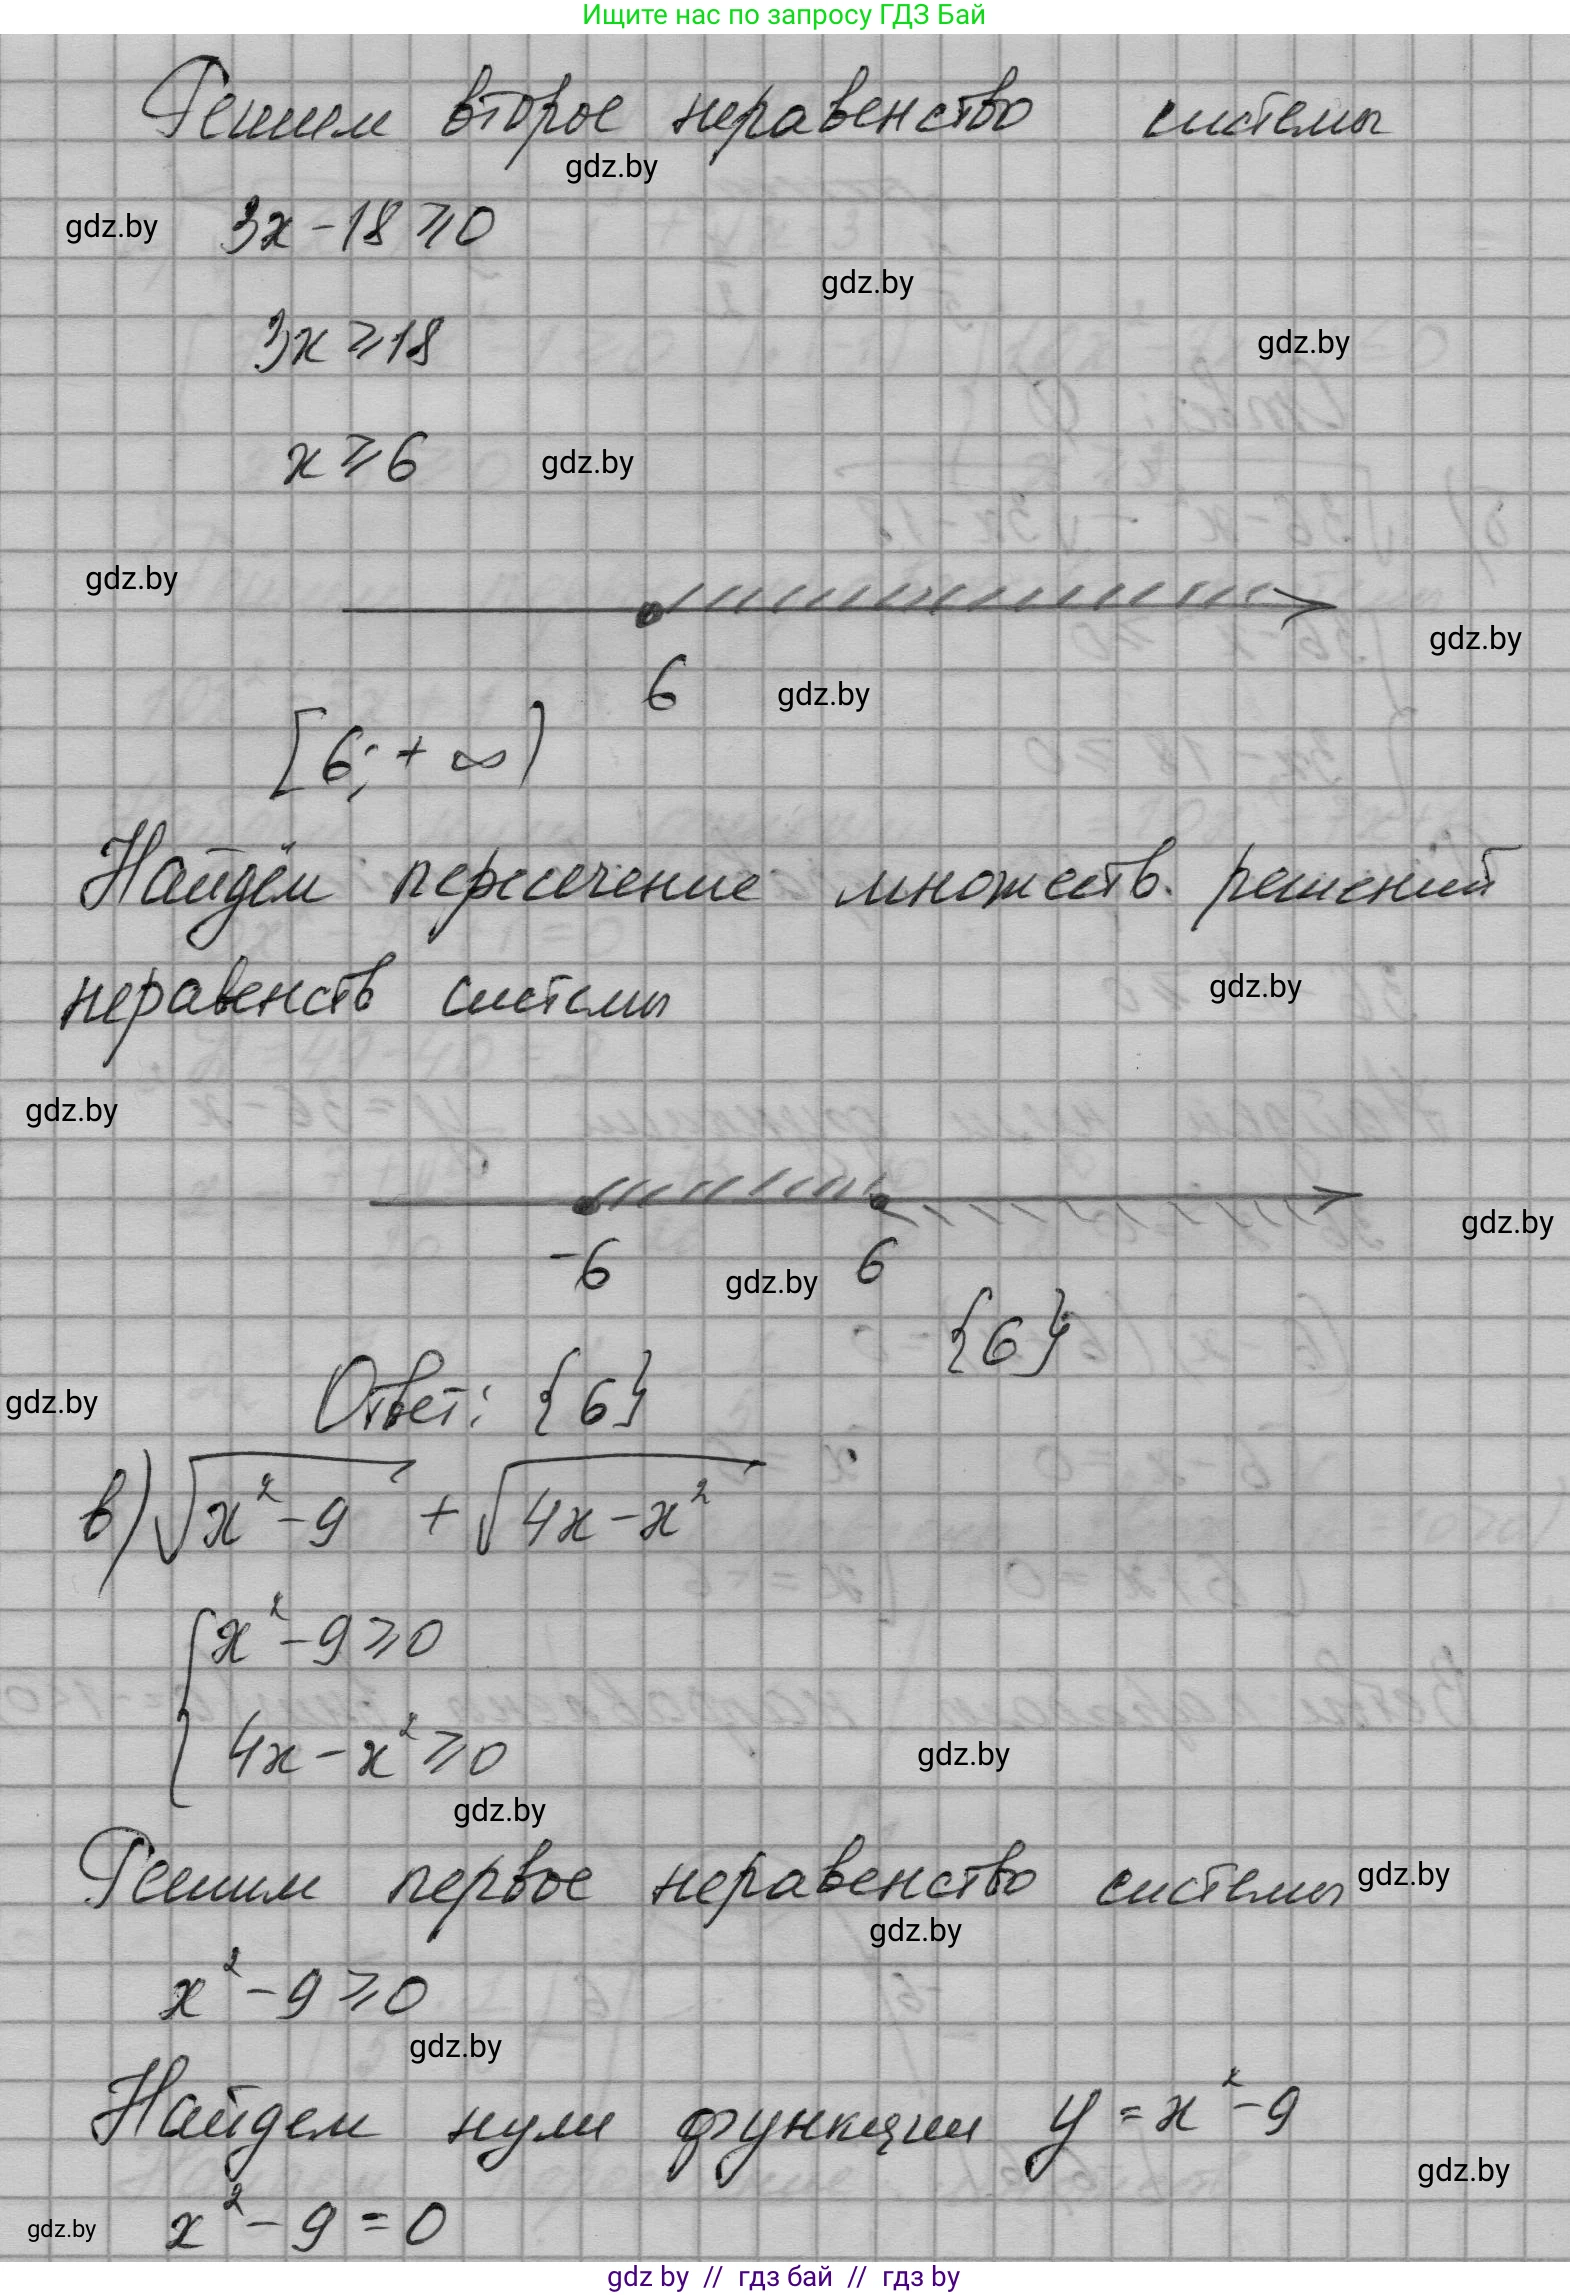 Ищите нас по запросу ГДЗ Бай
Решим второе неравенство системы
gdz.by
gdz.by 3x - 18 ⩾ 0
gdz.by
3x ⩾ 18
gdz.by
x ⩾ 6 gdz.by
gdz.by
gdz.by
6 gdz.by
[6; + ∞)
Найдём пересечение множеств решений
неравенств системы gdz.by
gdz.by
gdz.by
-6 gdz.by 6
{6}
gdz.by Ответ: {6}
в) √(x² - 9) + √(4x - x²)
{ x² - 9 ⩾ 0
4x - x² ⩾ 0 gdz.by
gdz.by
Решим первое неравенство системы gdz.by
gdz.by
x² - 9 ⩾ 0
gdz.by
Найдем нули функции y = x² - 9
gdz.by
gdz.by x² - 9 = 0
gdz by // гдз бай // гдз by